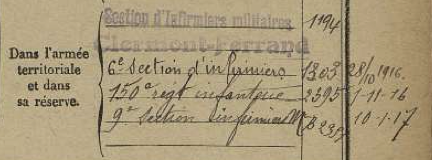 Section d'Infirmiers militaires 1194
Clermont-Ferrand
Dans l'armée
territoriale
et dans
sa réserve.
6e Section d'infirmiers 1303 28/10 1916.
150e regt infanterie 2395 1-11-16
9e Section infirmiers Mres 10-1-17